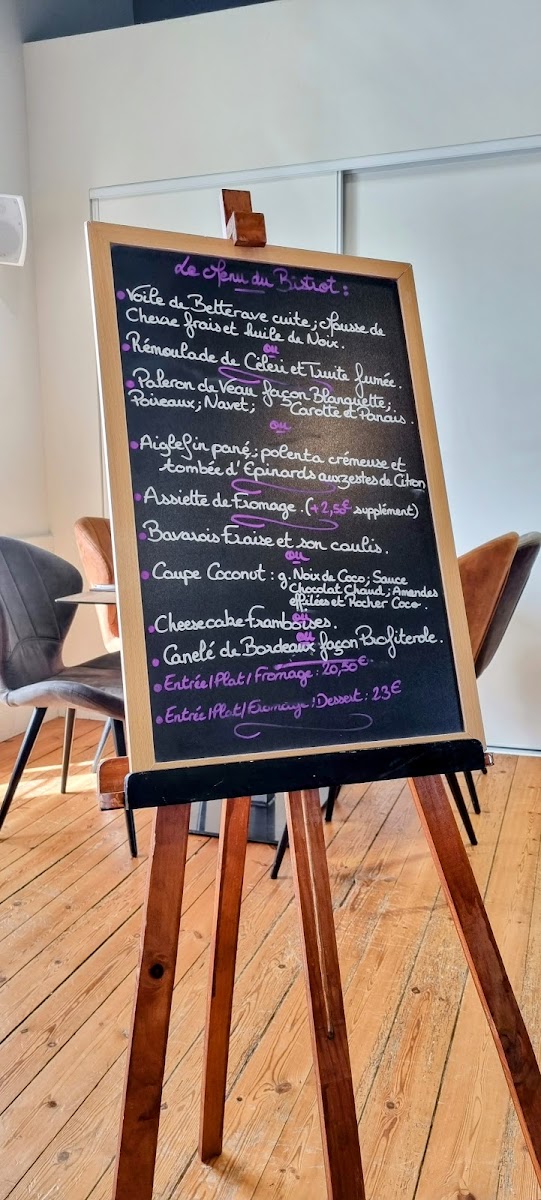 Le Menu du Bistrot :
• Voile de Betterave cuite ; Mousse de
Chevre frais et huile de Noix.
ou
• Rémoulade de Céleri et Truite fumée.
• Paleron de Veau façon Blanquette ;
Poireaux ; Navet ; Carotte et Panais.
ou
• Aiglefin pané ; polenta crémeuse et
tombée d'Epinards aux zestes de Citron
• Assiette de Fromage. (+2,50€ supplément)
• Bavarois Fraise et son coulis.
ou
• Coupe Coconut : g. Noix de Coco ; Sauce
Chocolat Chaud ; Amandes
effilées et Rocher Coco.
ou
• Cheesecake Framboises.
ou
• Canelé de Bordeaux façon Profiterole.
• Entrée/Plat/Fromage : 20,50€.
• Entrée/Plat/Fromage ; Dessert : 23€